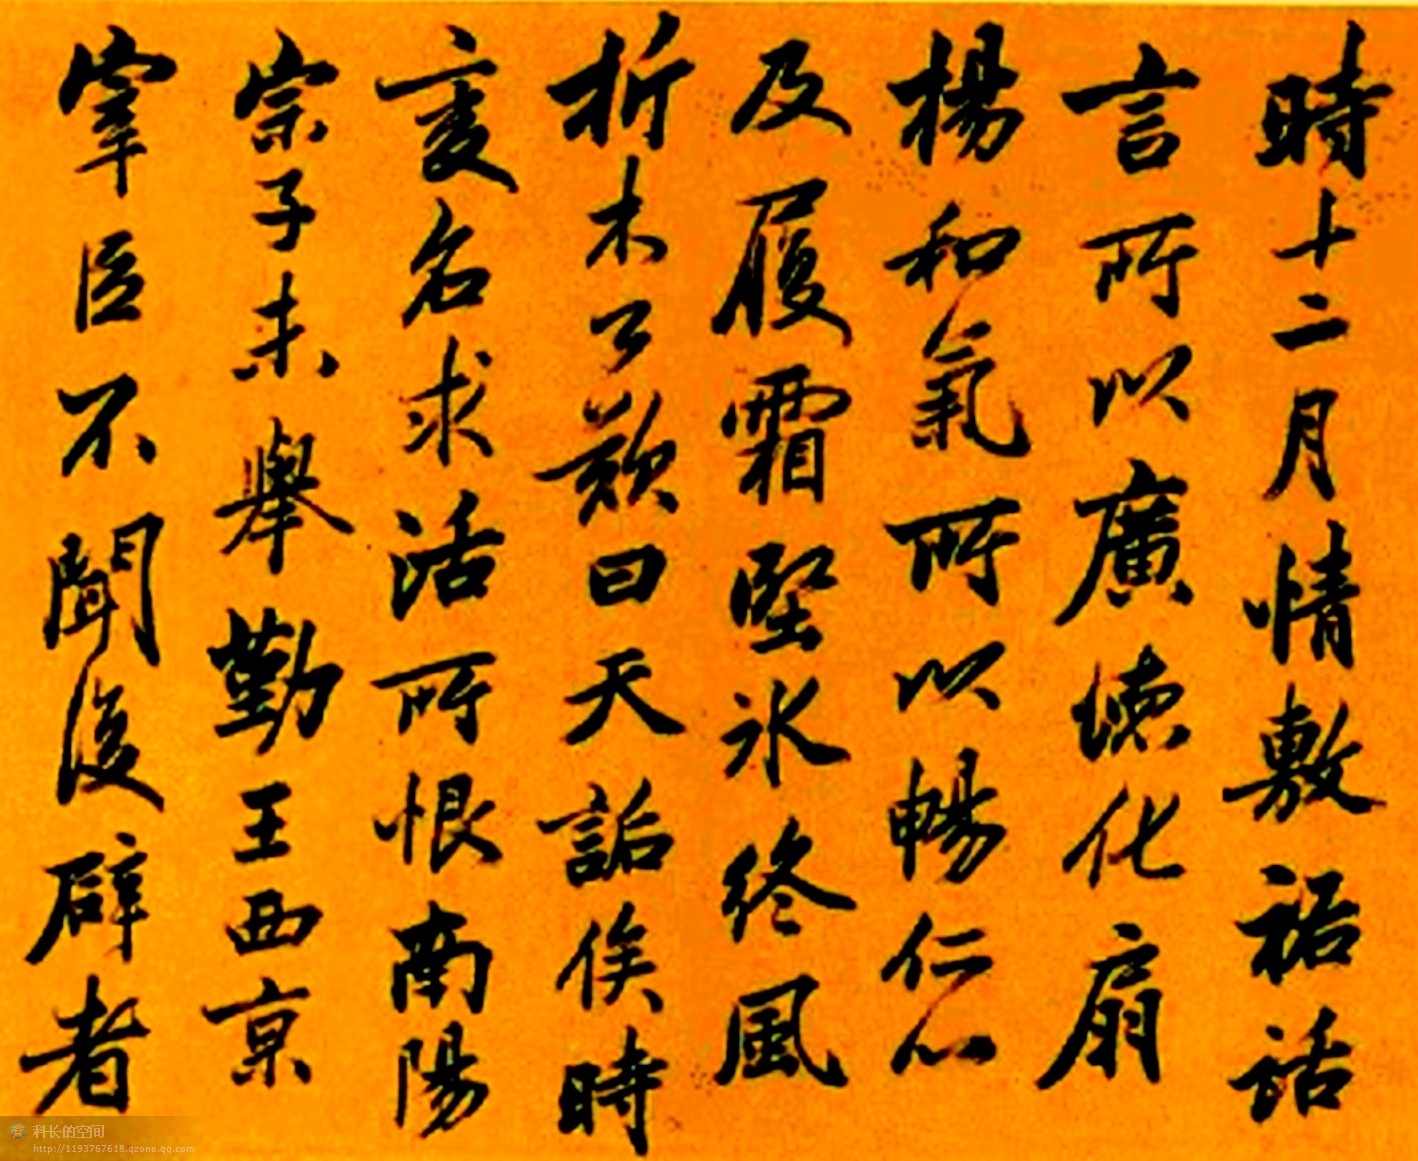 時十二月情敷祏話
言所以廣德化扇
楊和氣所以暢仁心
及履霜堅冰終風
折木公歎曰天詬俟時
変名求活所恨南陽
宗子未舉勤王西京
宰臣不聞復辟者
科长的空间
http://1193767618.qzone.qq.com